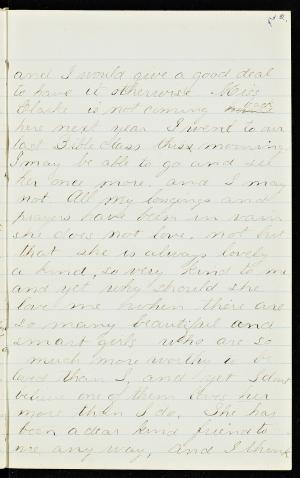 and I would give a good deal
to have it otherwise. Miss
Clarke is not coming back
here next year. I went to our
last Bible Class this morning.
I may be able to go and see
her once more. and I may
not. All my longings and
prayers have been in vain
she does not love. not but
that she is always lovely
& kind, so very kind to me
and yet why should she
love me when there are
so many beautiful and
smart girls who are so
much more worthy to be
loved than I, and yet I dont
believe one of them loves her
more than I do. She has
been a dear kind friend to
me any way, and I think